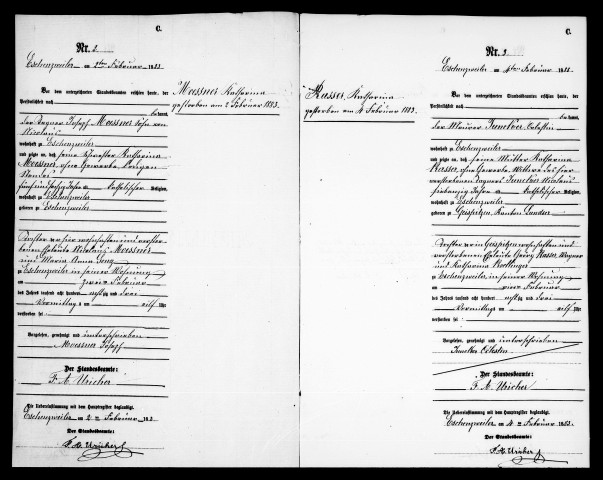 C.
Nr. 2
Eschenzweiler am 2ten Februar 1883
Vor dem unterzeichneten Standesbeamten erschien heute, der
Persönlichkeit nach
bekannt,
der Wagner Joseph Moessner Sohn von
Nicolaus
wohnhaft zu Eschenzweiler
und zeigte an, daß seine Schwester Katharina
Moessner, ohne Gewerbe, ledigen
Standes
Jahre alt, katholischer Religion,
wohnhaft zu Eschenzweiler
geboren zu Eschenzweiler
Tochter der hier wohnhaften und verstor-
benen Eheleute Nicolaus Moessner
und Maria Anna
zu Eschenzweiler in seiner Wohnung
am zwei Februar
des Jahres tausend acht hundert achtzig und drei
Vormittags um elf Uhr
verstorben sei
Vorgelesen, genehmigt und unterschrieben
Moessner Joseph
Der Standesbeamte:
F. A. Uricher
Die Uebereinstimmung mit dem Hauptregister beglaubigt.
Eschenzweiler am 2ten Februar 1883.
Der Standesbeamte:
F. A. Uricher
Moessner Katharina
gestorben am 2 Februar 1883.
C.
Nr. 3
Eschenzweiler am 4ten Februar 1883.
Vor dem unterzeichneten Standesbeamten erschien heute, der
Persönlichkeit nach
bekannt,
der Maurer Celestin
wohnhaft zu Eschenzweiler
und zeigte an, daß seine Mutter Katharina
Kasser, ohne Gewerbe, Wittwe des hier
verstorbenen Nicolaus
siebenzig Jahre alt, katholischer Religion,
wohnhaft zu Eschenzweiler
geboren zu Geispitzen, Kanton Landser
Tochter der in Geispitzen wohnhaften und
verstorbenen Eheleute Georg Kasser, Wagner
und Katharina
zu Eschenzweiler in seiner Wohnung
am vier Februar
des Jahres tausend acht hundert achtzig und drei
Vormittags um elf Uhr
verstorben sei
Vorgelesen, genehmigt und unterschrieben
Celestin
Der Standesbeamte:
F. A. Uricher
Die Uebereinstimmung mit dem Hauptregister beglaubigt.
Eschenzweiler am 4ten Februar 1883.
Der Standesbeamte:
F. A. Uricher
Kasser, Katharina
gestorben am 4 Februar 1883.